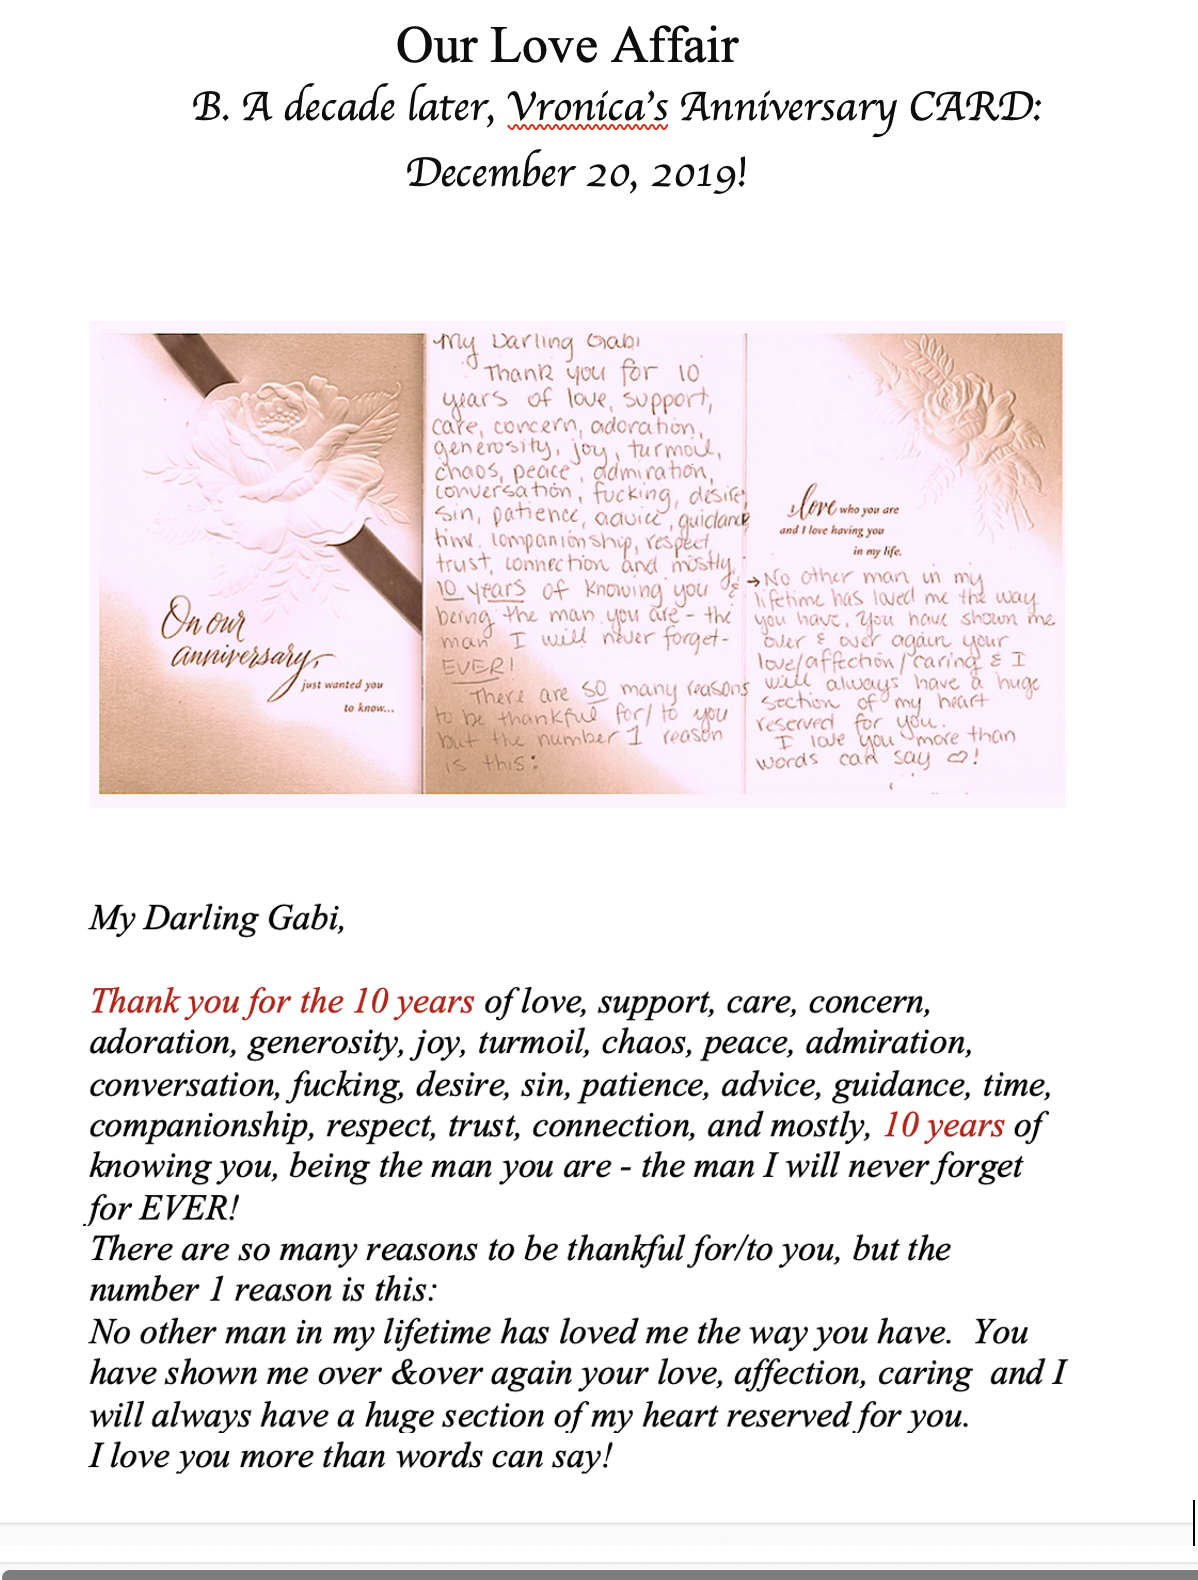 Our Love Affair
B. A decade later, Vronica's Anniversary CARD:
December 20, 2019!
On our
anniversary,
just wanted you
to know...
My Darling Gabi
Thank you for 10
years of love, support,
care, concern, adoration,
generosity, joy, turmoil,
chaos, peace, admiration,
conversation, fucking, desire,
sin, patience, advice, guidance
time, companionship, respect,
trust, connection and mostly,
10 years of knowing you &
being the man you are - the
man I will never forget-
EVER!
There are SO many reasons
to be thankful for/to you
but the number 1 reason
is this:
love who you are
and I love having you
in my life.
→No other man in my
lifetime has loved me the way
you have. You have shown me
over & over again your
love/affection/caring & I
will always have a huge
section of my heart
reserved for you.
I love you more than
words can say ♡!
My Darling Gabi,
Thank you for the 10 years of love, support, care, concern,
adoration, generosity, joy, turmoil, chaos, peace, admiration,
conversation, fucking, desire, sin, patience, advice, guidance, time,
companionship, respect, trust, connection, and mostly, 10 years of
knowing you, being the man you are - the man I will never forget
for EVER!
There are so many reasons to be thankful for/to you, but the
number 1 reason is this:
No other man in my lifetime has loved me the way you have.  You
have shown me over &over again your love, affection, caring  and I
will always have a huge section of my heart reserved for you.
I love you more than words can say!